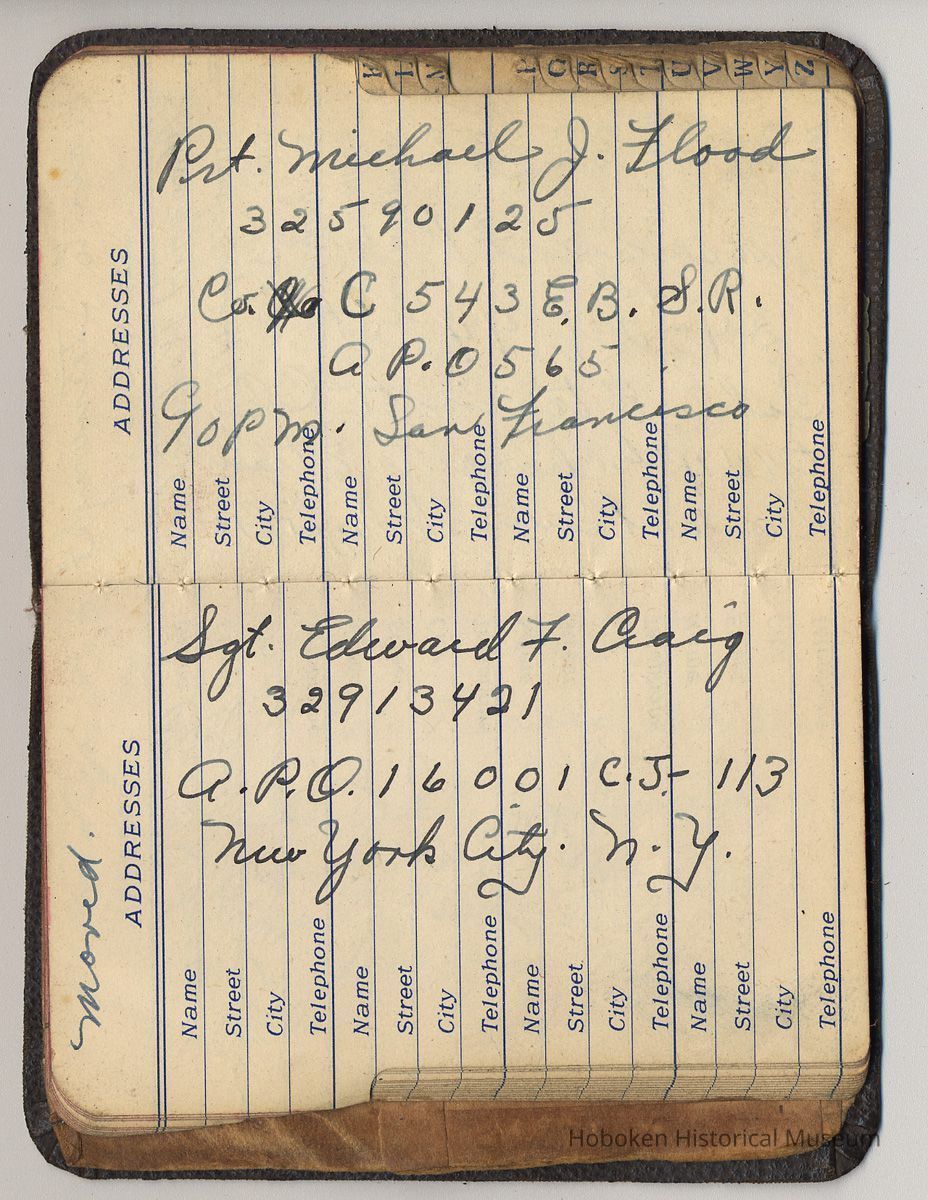 ADDRESSES
Pvt. Michael J. Flood
32590125
Co. C 543 E.B. S.R.
A P.O 565
℅ P M. San Francisco
Name
Street
City
Telephone
Name
Street
City
Telephone
Name
Street
City
Telephone
Name
Street
City
Telephone
F
L
N
P
Q
R
S
T
U
V
W
Y
Z
ADDRESSES
Moved.
Sgt. Edward F. Craig
32913421
A.P.O. 16001 C.J- 113
New York City. N.Y.
Name
Street
City
Telephone
Name
Street
City
Telephone
Name
Street
City
Telephone
Name
Street
City
Telephone
Hoboken Historical Museum